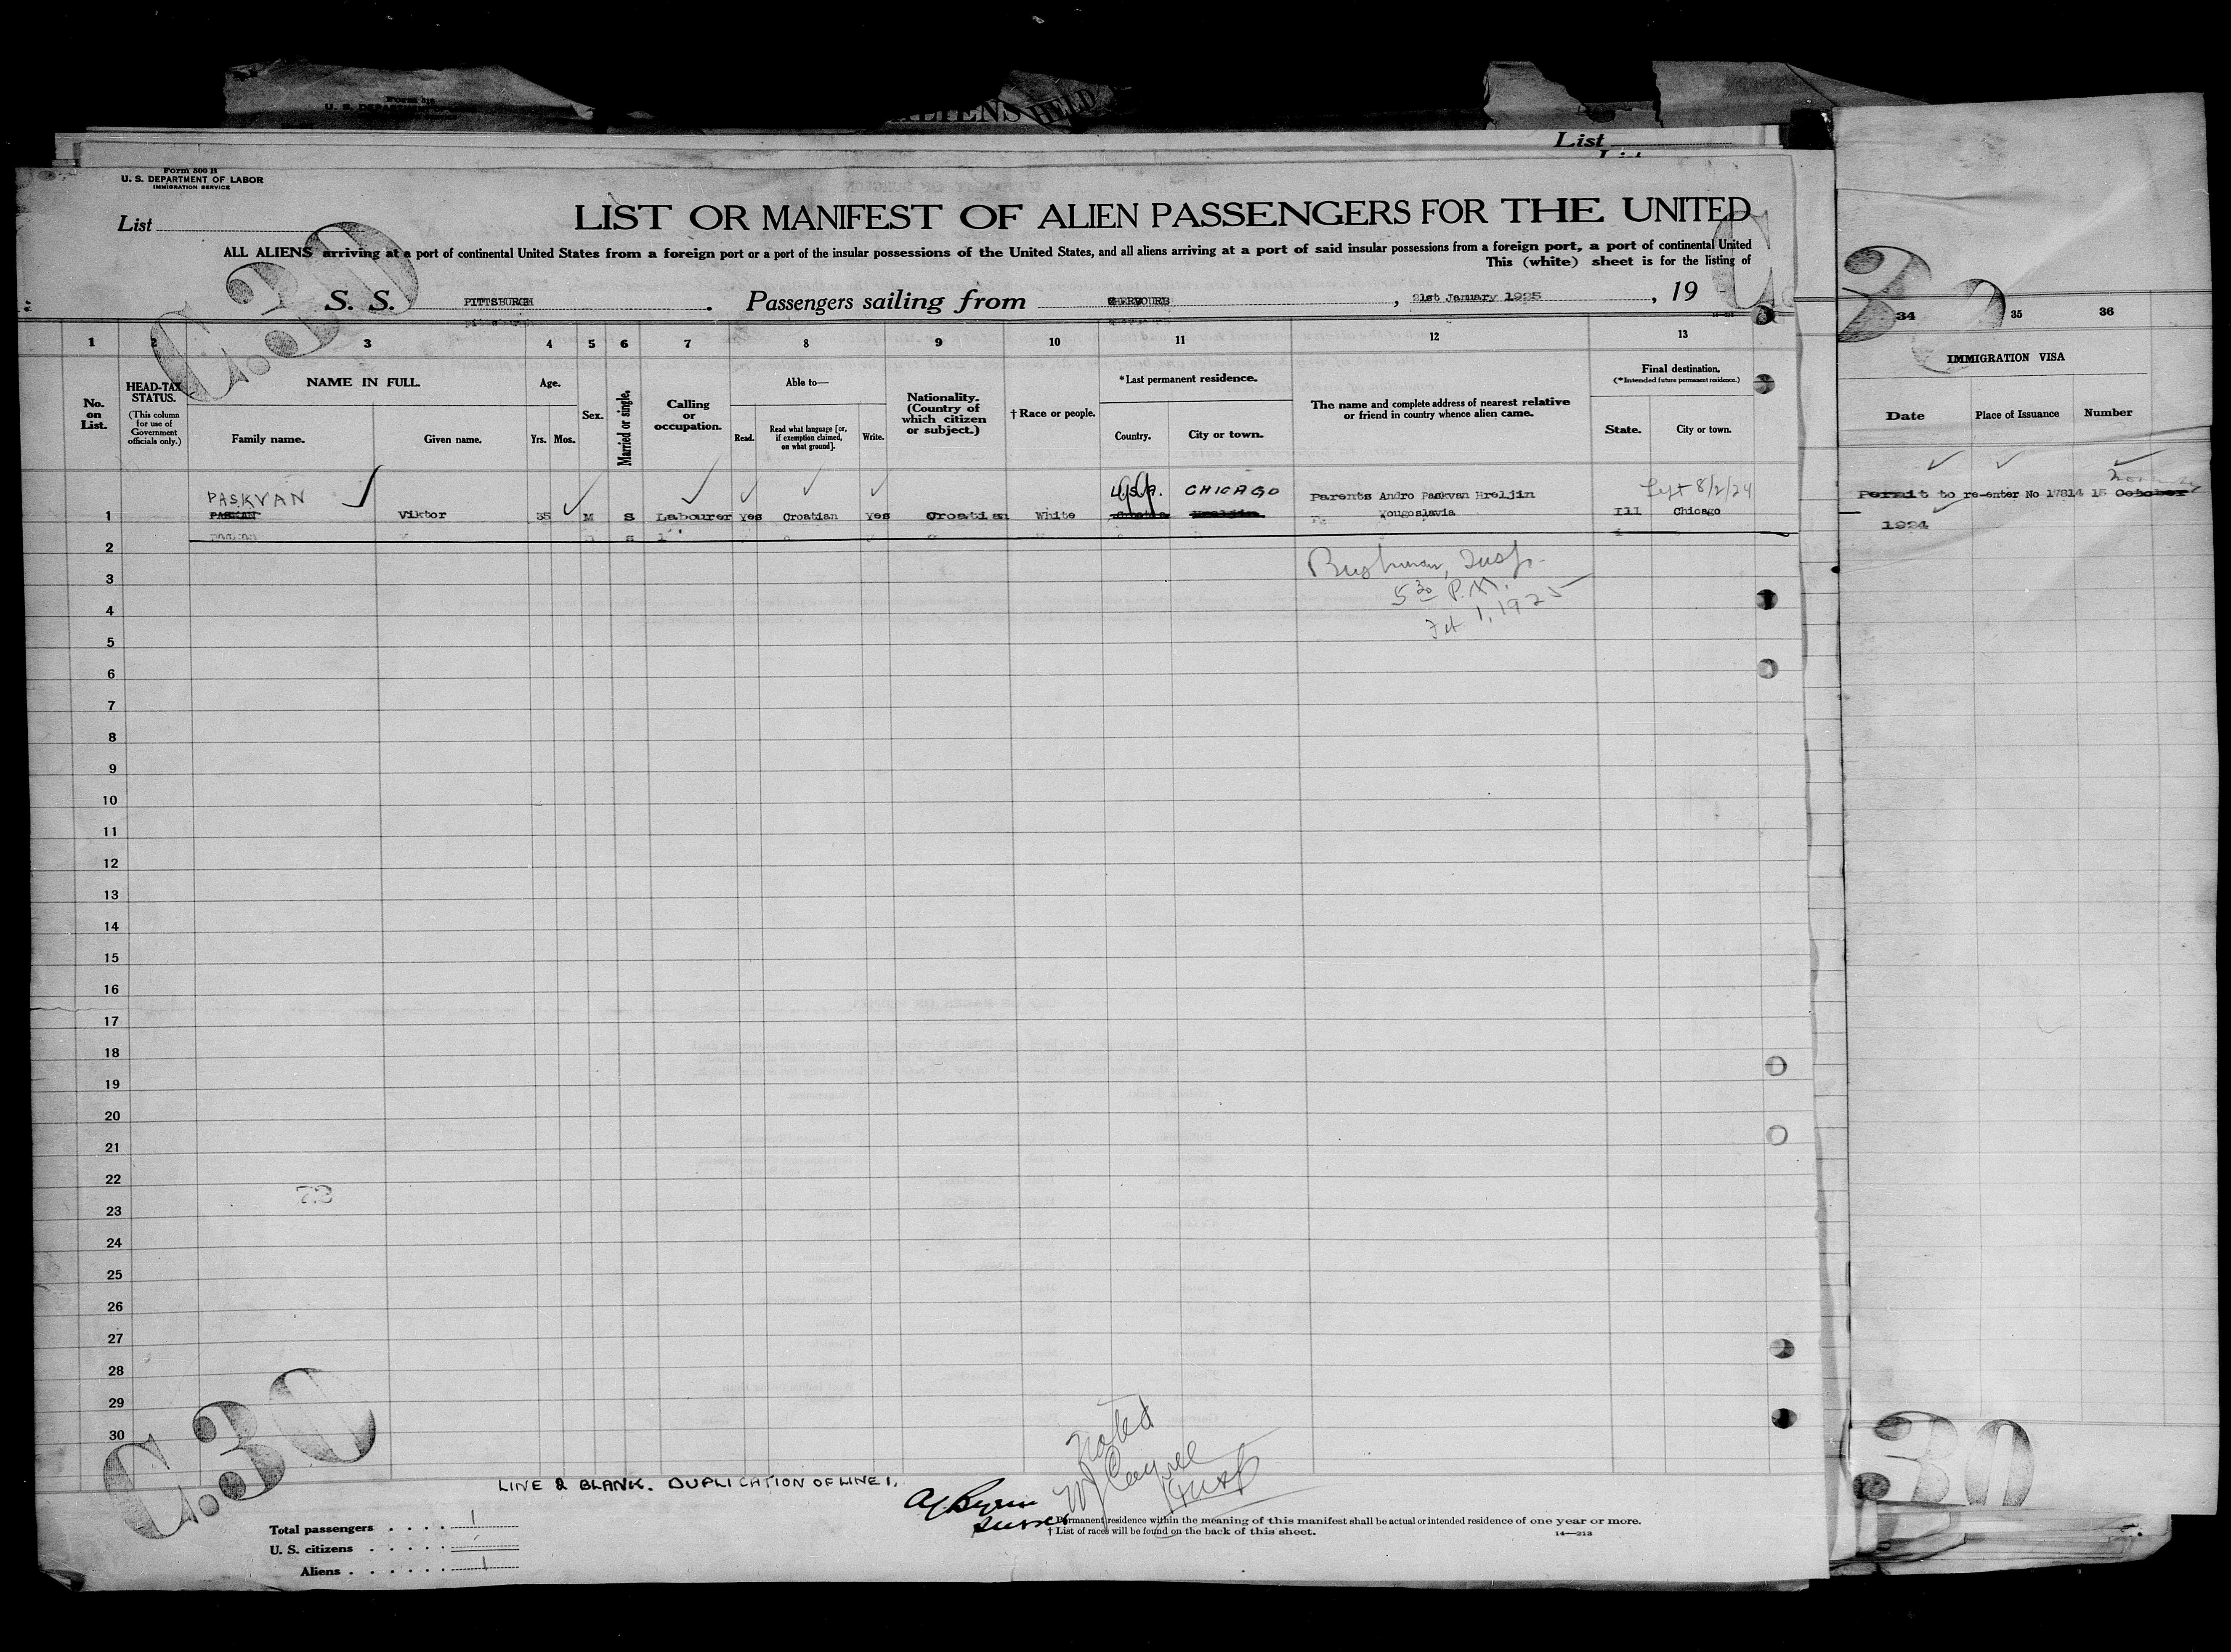 Form 500 B
U. S. DEPARTMENT OF LABOR
IMMIGRATION SERVICE
List
List
LIST OR MANIFEST OF ALIEN PASSENGERS FOR THE UNITED
ALL ALIENS arriving at a port of continental United States from a foreign port or a port of the insular possessions of the United States, and all aliens arriving at a port of said insular possessions from a foreign port, a port of continental United
This (white) sheet is for the listing of
C.30
S. S. PITTSBURGH. Passengers sailing from CHERBOURG, 21st January 1925, 19
1 2 3 4 5 6 7 8 9 10 11 12 13 34 35 36
No. on List.
HEAD-TAX STATUS.
(This column for use of Government officials only.)
NAME IN FULL.
Family name. Given name.
Age.
Yrs. Mos.
Sex.
Married or single.
Calling or occupation.
Able to—
Read. Read what language [or, if exemption claimed, on what ground]. Write.
Nationality. (Country of which citizen or subject.)
† Race or people.
*Last permanent residence.
Country. City or town.
The name and complete address of nearest relative or friend in country whence alien came.
Final destination.
(*Intended future permanent residence.)
State. City or town.
IMMIGRATION VISA
Date Place of Issuance Number
PASKVAN U.S.A. CHICAGO Parents Andro Paskvan Hreljin Left 8/2/24 Permit to re-enter No 17814 15 October
1 PASKAN Viktor 35 M S Labourer Yes Croatian Yes Croatian White Croatia Hreljin Yougoslavia Ill Chicago 1924
2
3
4
5
6
7
8
9
10
11
12
13
14
15
16
17
18
19
20
21
22
23
24
25
26
27
28
29
30
5 30 P.M.
Feb 1, 1925
C.30
30
Noted
LINE 2 BLANK. DUPLICATION OF LINE 1.
Total passengers . . . . 1
U. S. citizens . . . . .
Aliens . . . . . . 1
* Permanent residence within the meaning of this manifest shall be actual or intended residence of one year or more.
† List of races will be found on the back of this sheet.
14—213